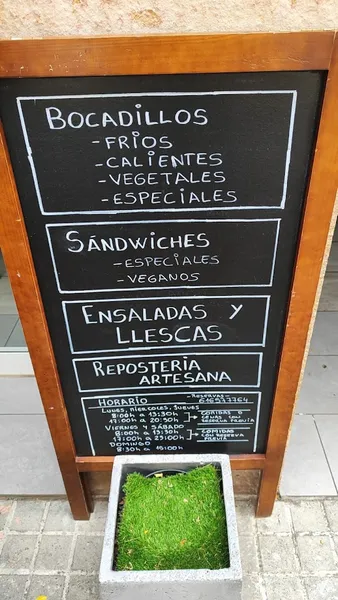 BOCADILLOS
- FRIOS
- CALIENTES
- VEGETALES
- ESPECIALES
SÁNDWICHES
- ESPECIALES
- VEGANOS
ENSALADAS Y
LLESCAS
REPOSTERIA
ARTESANA
HORARIO
- RESERVAS
LUNES, MIERCOLES, JUEVES
8:00h a 13:30h
COMIDAS O
17:00h a 20:30h
CENAS SOLO
VIERNES Y SÁBADO
8:00h a 13:30h
COMIDAS
17:00h a 23:00h
RESERVA
PREVIA
DOMINGO
8:30h a 15:00h